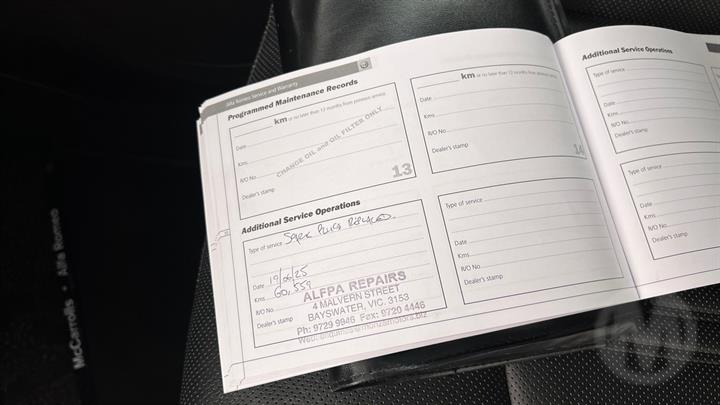 Alfa Romeo Service and Warranty
Programmed Maintenance Records
km or no later than 12 months from previous service
Date
Kms
R/O No
Dealer's stamp
CHANGE OIL and OIL FILTER ONLY
13
km or no later than 12 months from previous service
Date
Kms
R/O No
Dealer's stamp
14
Additional Service Operations
Type of service SPARK PLUGS REPLACED.
Date 19/06/25
Kms 60,559
R/O No
Dealer's stamp
ALFPA REPAIRS
4 MALVERN STREET
BAYSWATER, VIC. 3153
Ph: 9729 9946 Fax: 9720 4446
Type of service
Date
Kms
R/O No
Dealer's stamp
Additional Service Operations
Type of service
Date
Kms
R/O No
Dealer's stamp
Type of service
Date
Kms
R/O No
Dealer's stamp
McCarrolls • Alfa Romeo
M